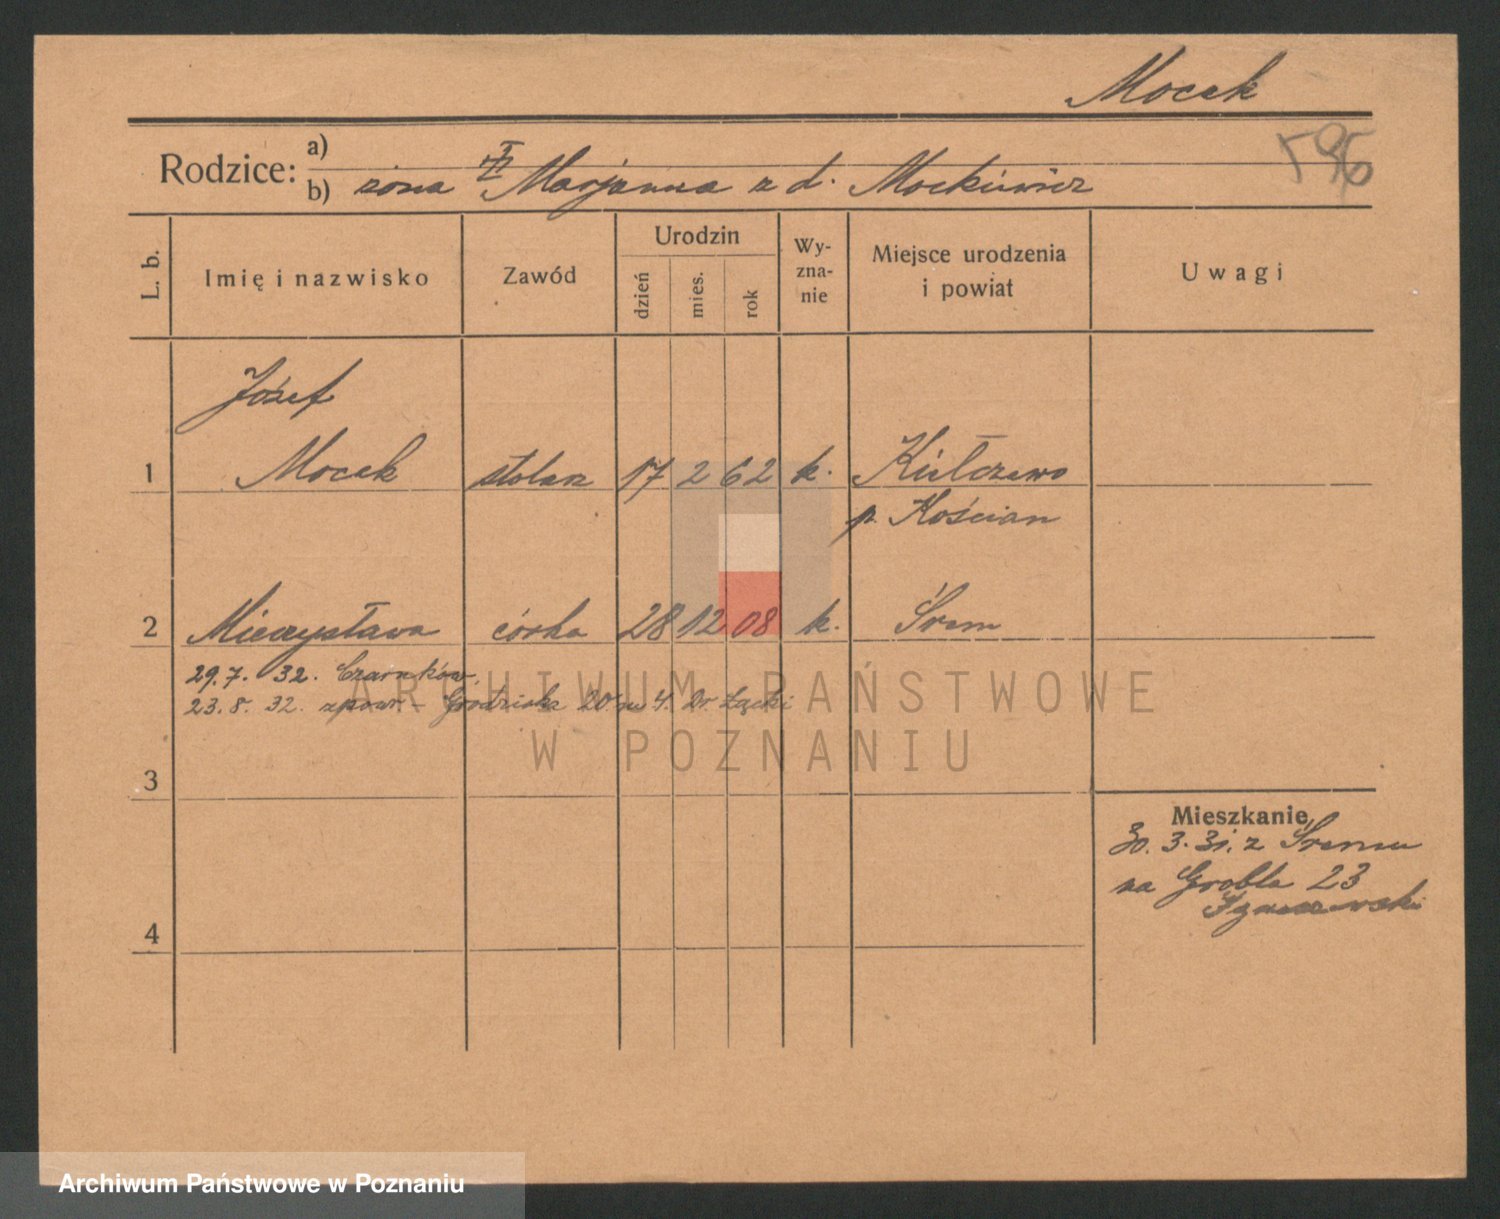 Mocek
596
Rodzice: a)
b) żona II Marjanna z d. Mockiewicz
L. b.
Imię i nazwisko
Zawód
Urodzin
dzień
mies.
rok
Wy-
zna-
nie
Miejsce urodzenia
i powiat
Uwagi
Józef
1 Mocek stolarz 17 2 62 k. Kiełczewo
p. Kościan
2 Mieczysława córka 28 12 08 k. Śrem
29.7. 32. Czarnków.
23.8. 32. zpowr. - Grodziska 20 m 4. Dr Łącki
ARCHIWUM PAŃSTWOWE
W POZNANIU
3
Mieszkanie
30. 3. 31. z Śremu
na Grobla 23
4
Archiwum Państwowe w Poznaniu